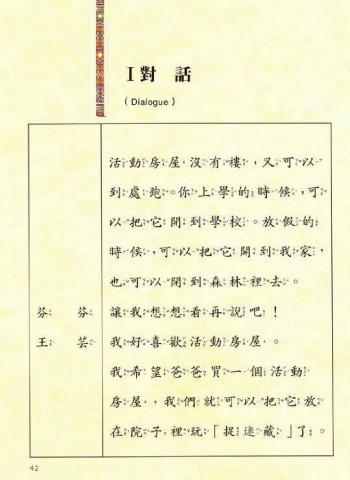 I 對 話
(Dialogue)
活動房屋,沒有樓,又可以
到處跑。你上學的時候,可
以把它開到學校。放假的
時候,可以把它開到我家,
也可以開到森林裡去。
芬 芬 讓我想想看再說吧!
王 芸 我好喜歡活動房屋。
我希望爸爸買一個活動
房屋,我們就可以把它放
在院子裡玩「捉迷藏」了。
42